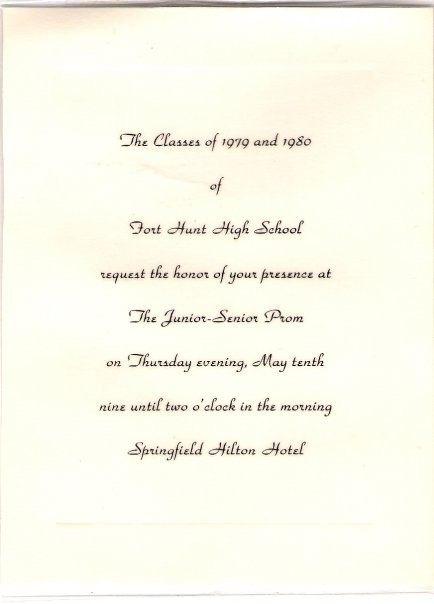 The Classes of 1979 and 1980
of
Fort Hunt High School
request the honor of your presence at
The Junior-Senior Prom
on Thursday evening, May tenth
nine until two o'clock in the morning
Springfield Hilton Hotel